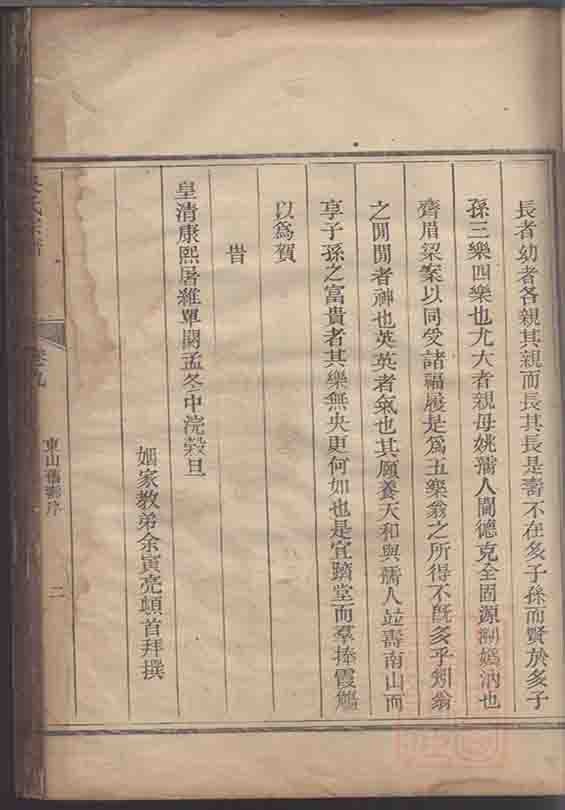 長者幼者各親其親而長其長是壽不在多子孫而賢於多子
孫三樂四樂也尤大者親母姚孺人閫德克全固源溯媯汭也
齊眉梁案以同受諸福履是為五樂翁之所得不旣多乎矧翁
之閒閒者神也英英者氣也其願養天和與孺人並壽南山而
享子孫之富貴者其樂無央更何如也是宜躋堂而羣捧霞觴
以為賀
旹
皇清康熙屠維單閼孟冬中浣穀旦
姻家教弟余寅亮頓首拜撰
卷九
東山
序
二